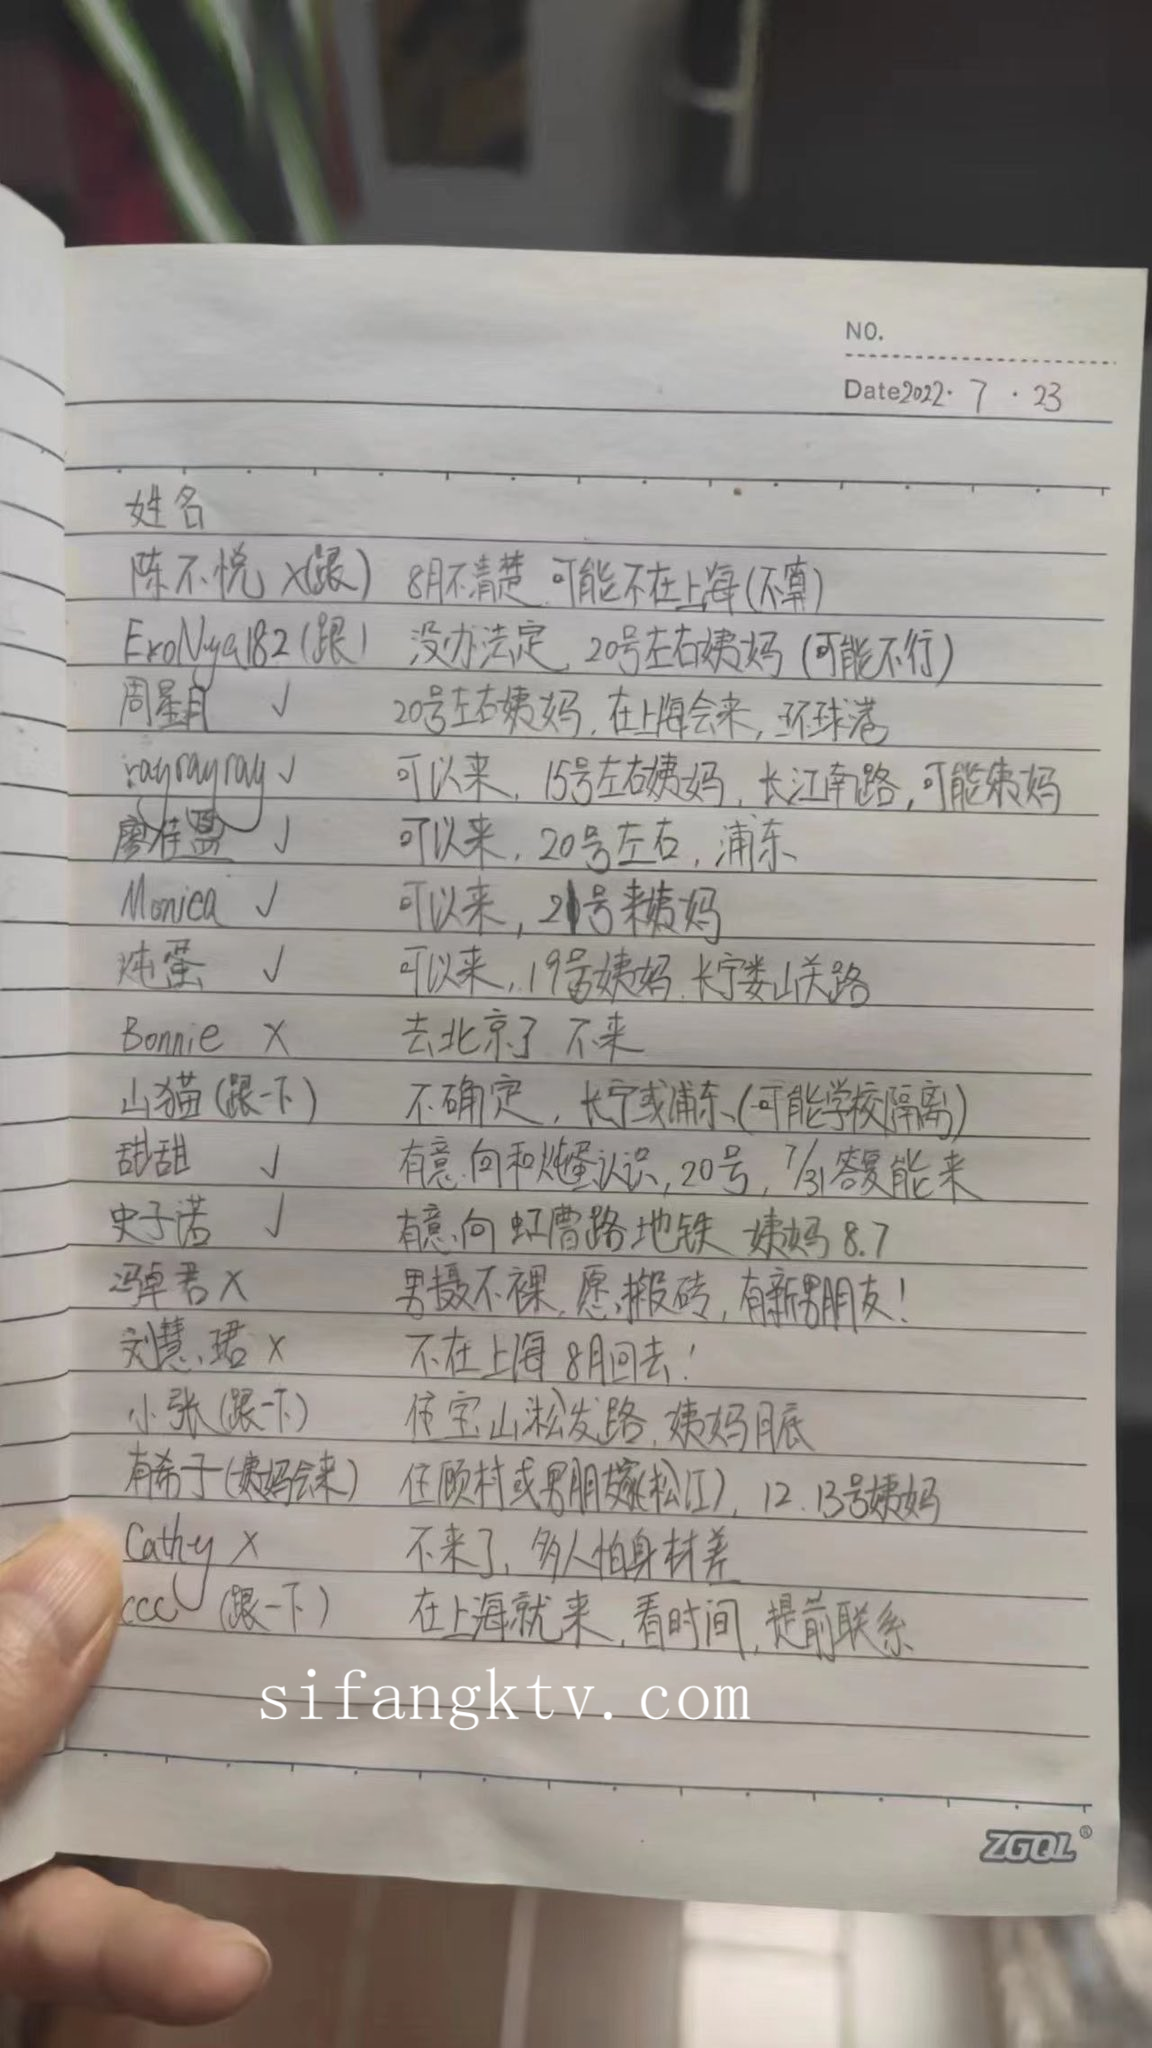 NO.
Date 2022.7.23
姓名
陈不悦 x(跟) 8月不清楚 可能不在上海(不算)
EroNya182(跟) 没办法定,20号左右姨妈(可能不行)
周星月 ✓ 20号左右姨妈,在上海会来,环球港
rayrayray ✓ 可以来,15号左右姨妈,长江南路,可能姨妈
廖佳盟 ✓ 可以来,20号左右,浦东
Monica ✓ 可以来,21号来姨妈
炖蛋 ✓ 可以来,19号姨妈,长宁娄山关路
Bonnie X 去北京了 不来
山猫(跟一下) 不确定,长宁或浦东(可能学校隔离)
甜甜 ✓ 有意向和炖蛋认识,20号,7/31答复能来
史子诺 ✓ 有意向 虹曹路地铁 姨妈8.7
冯卓君 X 男摄不裸,愿搬砖,有新男朋友!
刘慧珺 X 不在上海 8月回去!
小张(跟一下) 住宝山淞发路,姨妈月底
有希子(姨妈会来) 住顾村或男朋友家(松江),12.13号姨妈
Cathy X 不来了,多人怕身材差
ccc (跟一下) 在上海就来,看时间,提前联系
sifangktv.com
ZGQL®